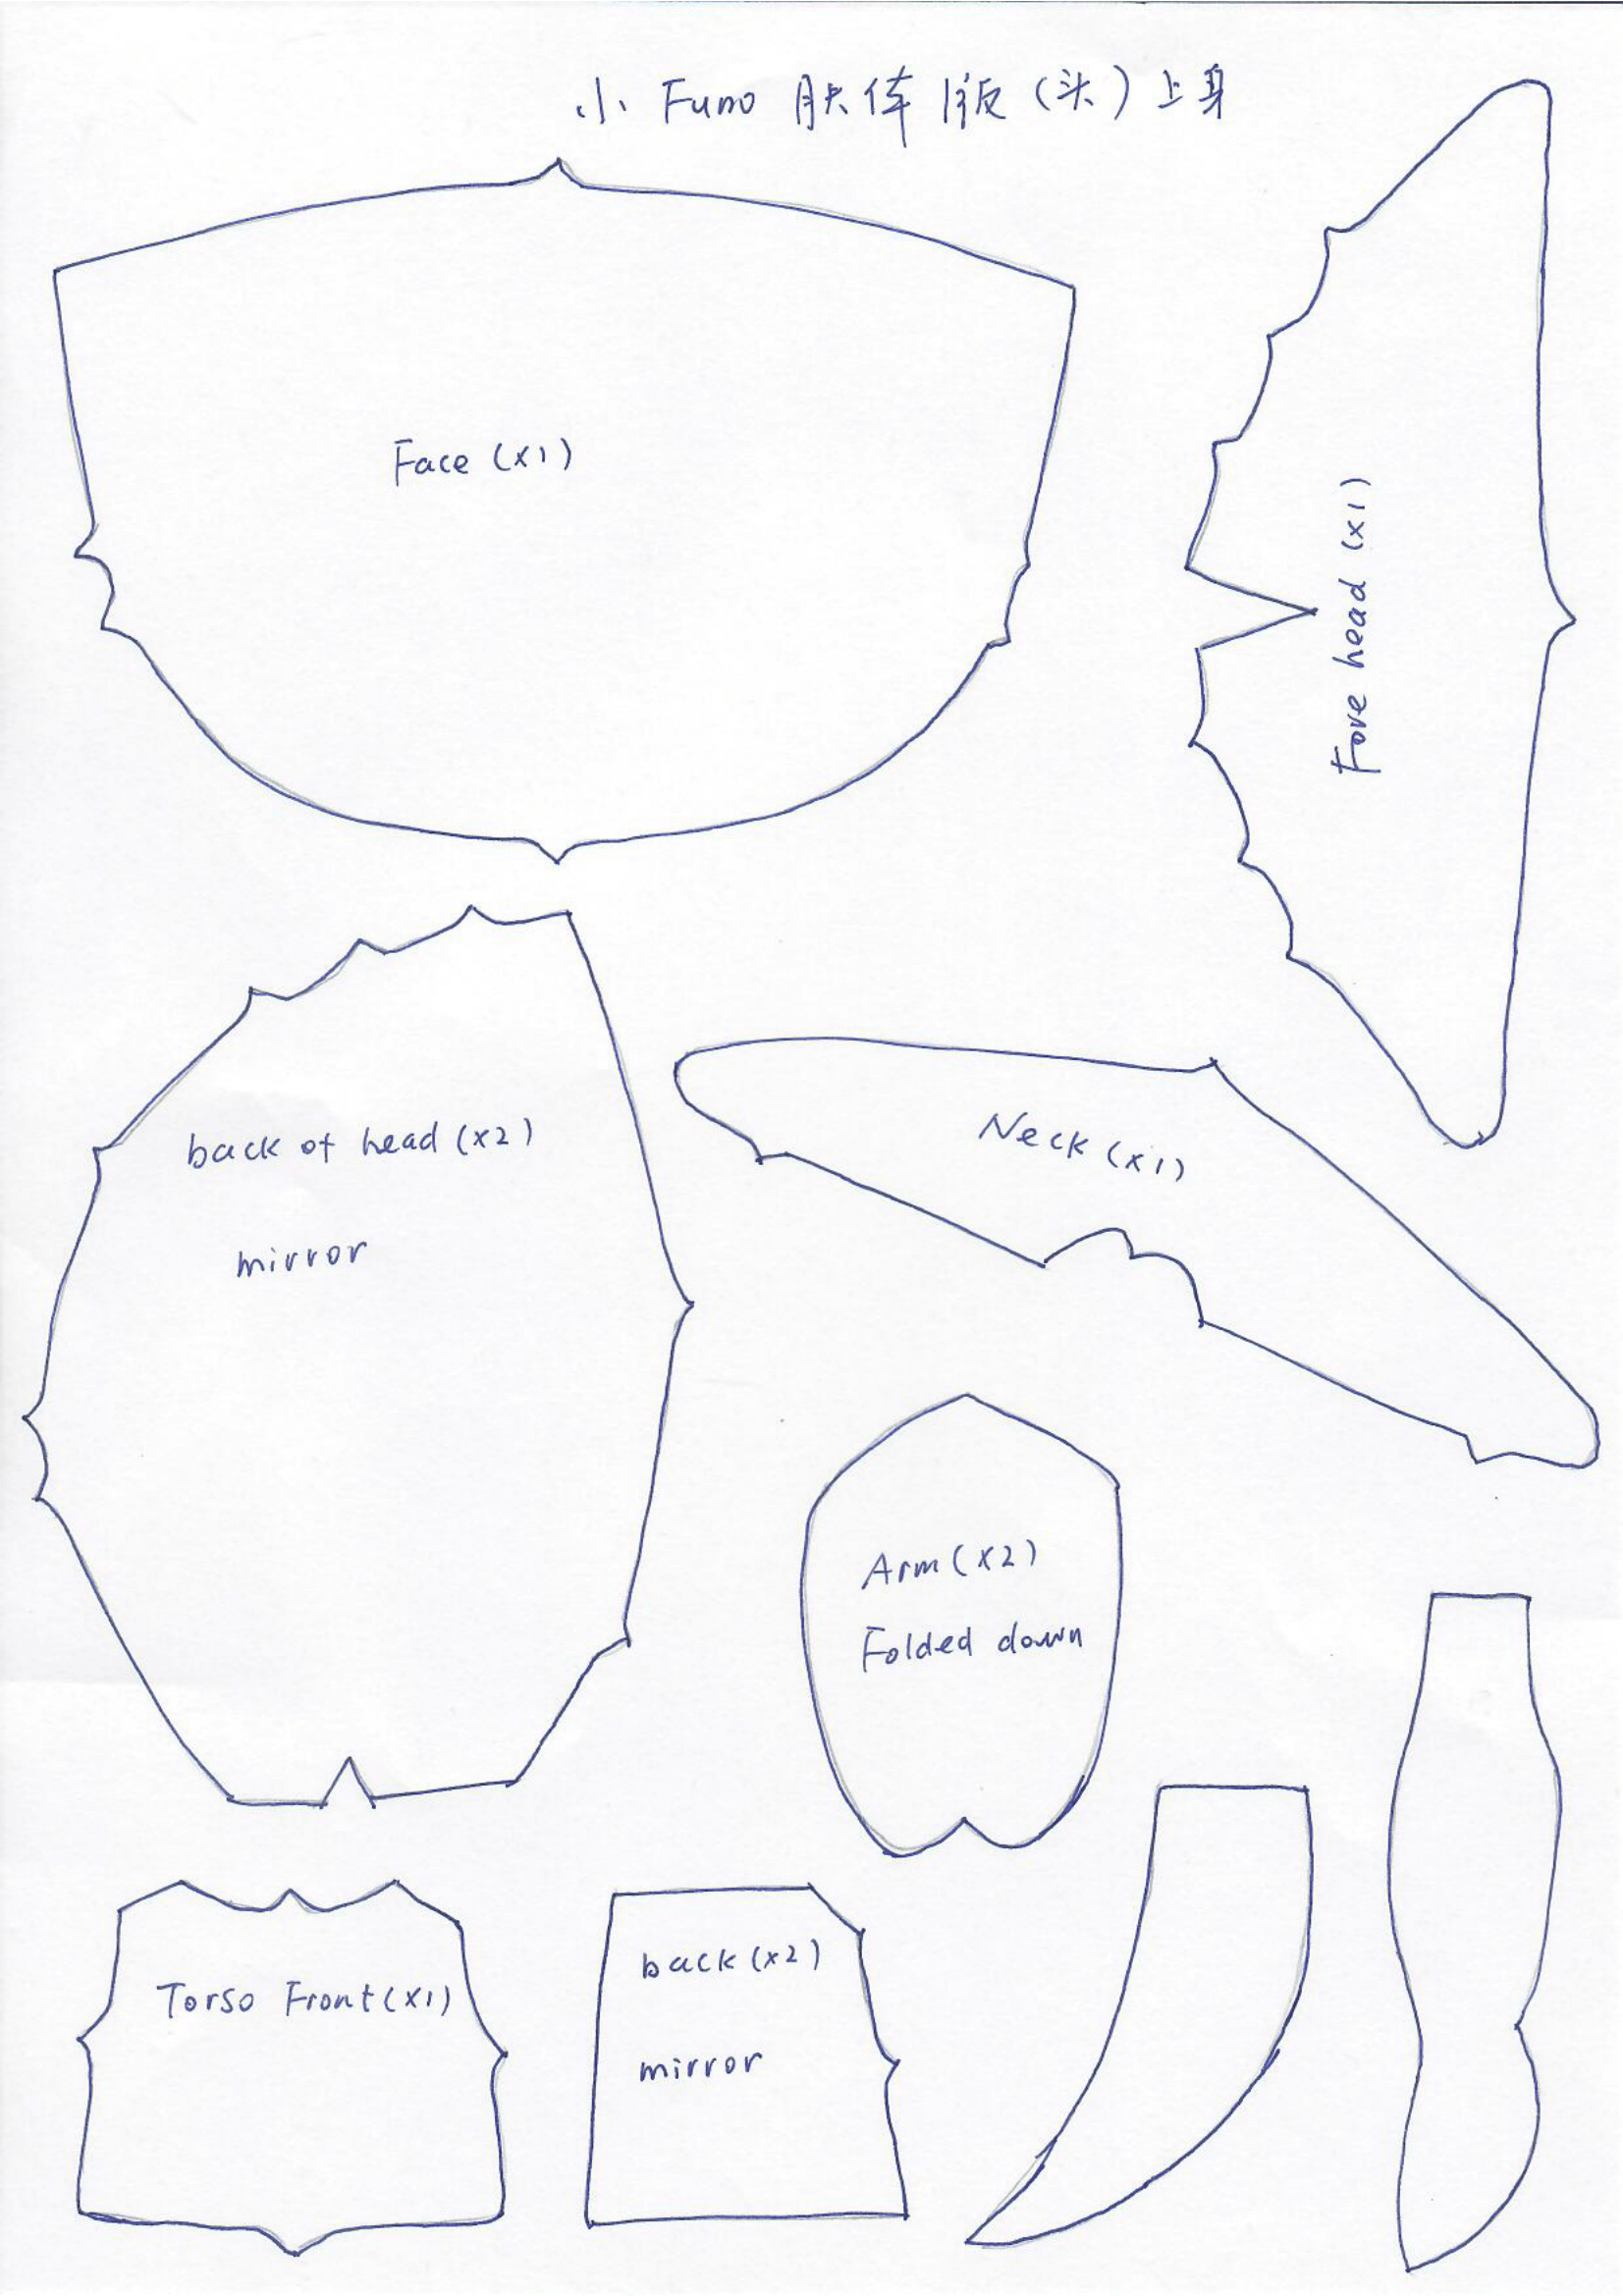 小 Fumo 肤体 版 (头) 上身
Face (x1)
Fore head (x1)
back of head (x2)
mirror
Neck (x1)
Arm (x2)
Folded down
Torso Front (x1)
back (x2)
mirror